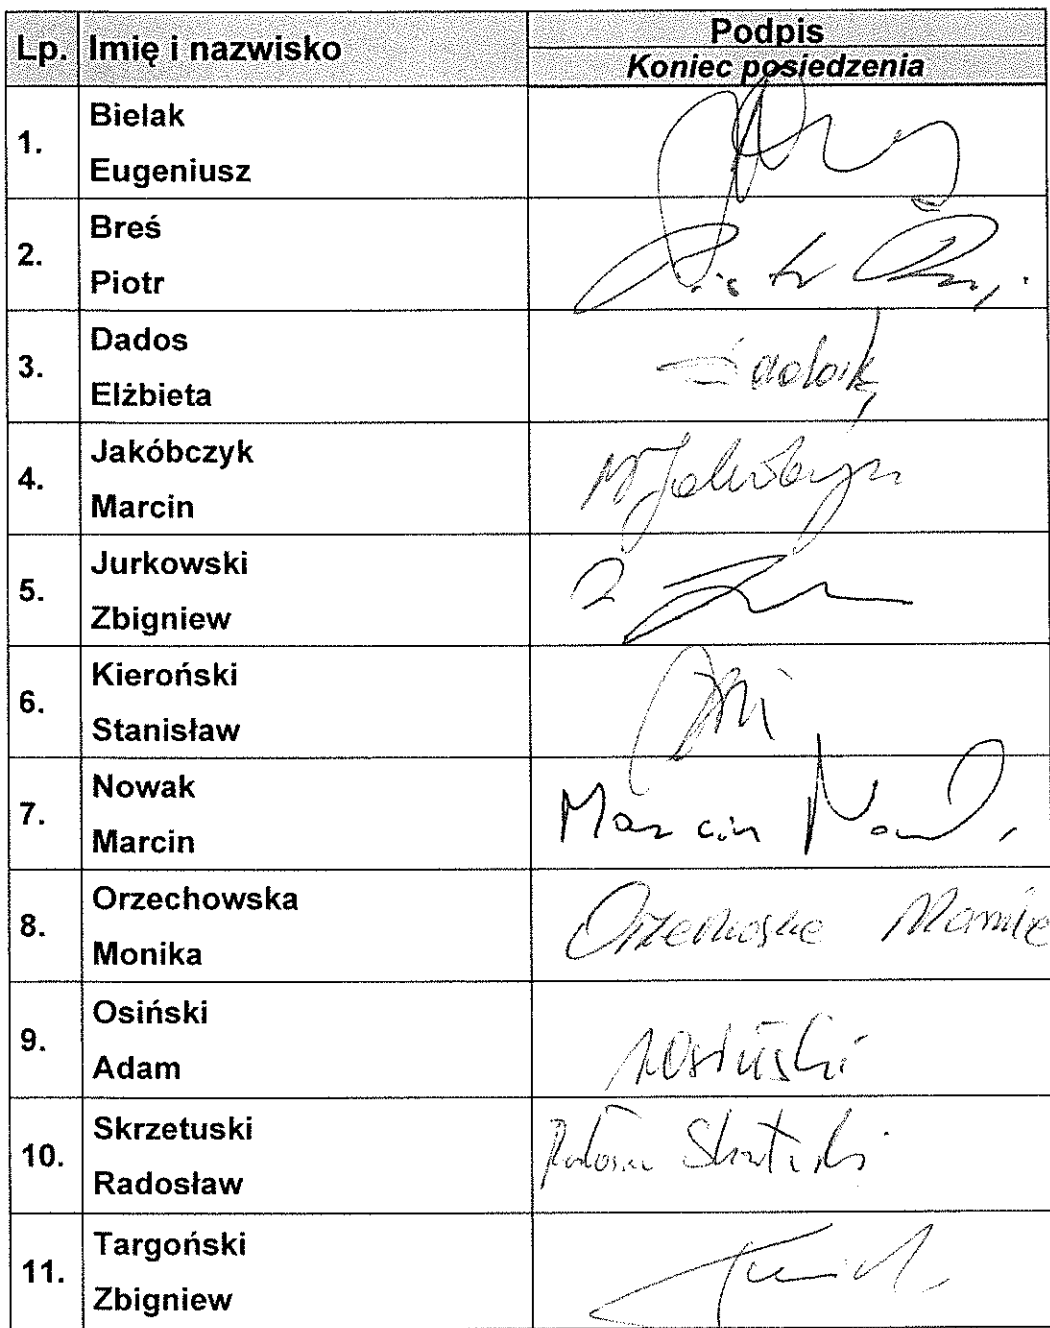 Lp. Imię i nazwisko
Podpis
Koniec posiedzenia
1.
Bielak
Eugeniusz
2.
Breś
Piotr
Piotr
3.
Dados
Elżbieta
4.
Jakóbczyk
Marcin
5.
Jurkowski
Zbigniew
6.
Kieroński
Stanisław
7.
Nowak
Marcin
Marcin Nowak
8.
Orzechowska
Monika
9.
Osiński
Adam
AOsiński
10.
Skrzetuski
Radosław
11.
Targoński
Zbigniew